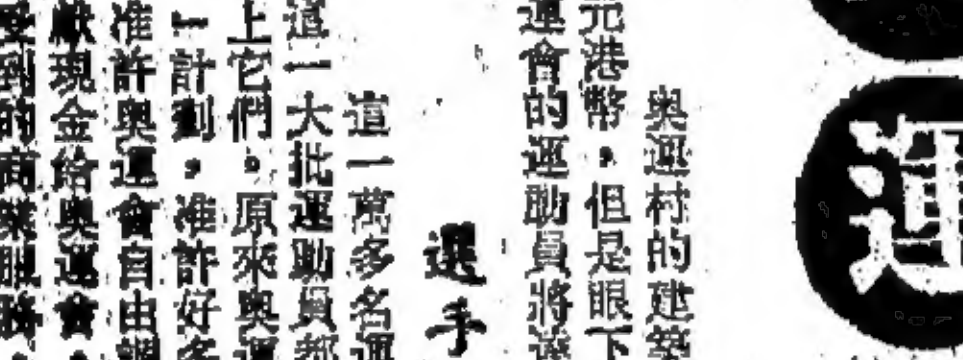 運
奧運村的建築
元港幣，但是眼下
運會的運動員將
選手
這一萬多名運
這一大批運動員都
上它們。原來奧運
計劃，准許好多
准許奧運會自由調
獻現金給奧運會，
受到的商業服務，